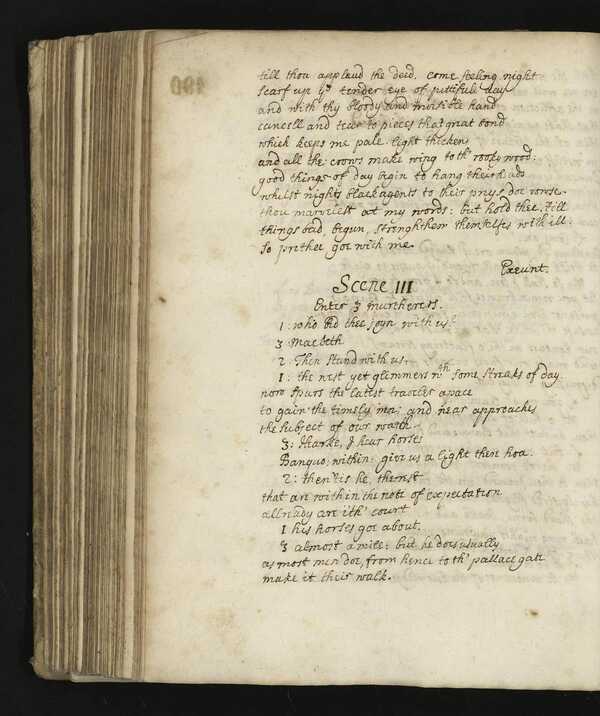 till thou applaud the deed. come seeling night
scarf up ye tender eye of pittifule day
and with thy bloody and invisible hand
cancell and tear to pieces that great bond
which keeps me pale. light thickens
and all the crows make wing to th' rooky wood:
good things of day begin to hang their heads
whilst nights black agents to their preys doe rowse.
thou marveilst at my words: but hold thee still
things bad, begun, strenghthem themselfes with ill.
so prithee goe with me.
Exeunt.
Scene III
Enter 3 murtherers.
1: who bid thee joyn with us?
3 Macbeth
2. Then stand with us.
1: the west yet glimmers wth some streaks of day
now spurs the latest traveler apace
to gain the timely inn: and near approaches
the subject of our watch.
3: Harke, I hear horses
Banquo; within: give us a light there hoa.
2: then 'tis he, the rest
that are within the note of expectation
allready are ith' court
1 his horses goe about.
3 almost a mile: but he does usually
as most men doe, from hence to th' pallace gate
make it their walk.